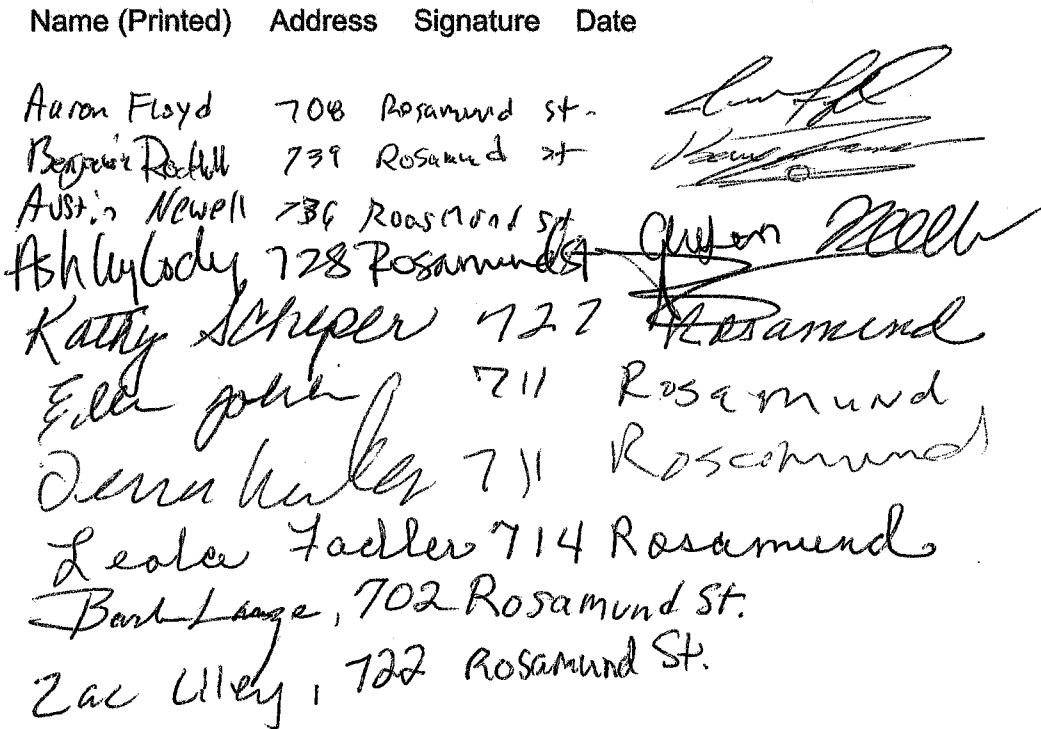 Name (Printed) Address Signature Date
Aaron Floyd 708 Rosamund St.
Benjamin 739 Rosamund st
Austin Newell 736 Roasmond st
Ashley Cody 728 Rosamund St
Kathy Scheper 727 Rosamund
Ellen 711 Rosamund
711 Roscomund
Leola Fadler 714 Rosamund
Barb Lange, 702 Rosamund St.
Zac Liley, 722 Rosamund St.